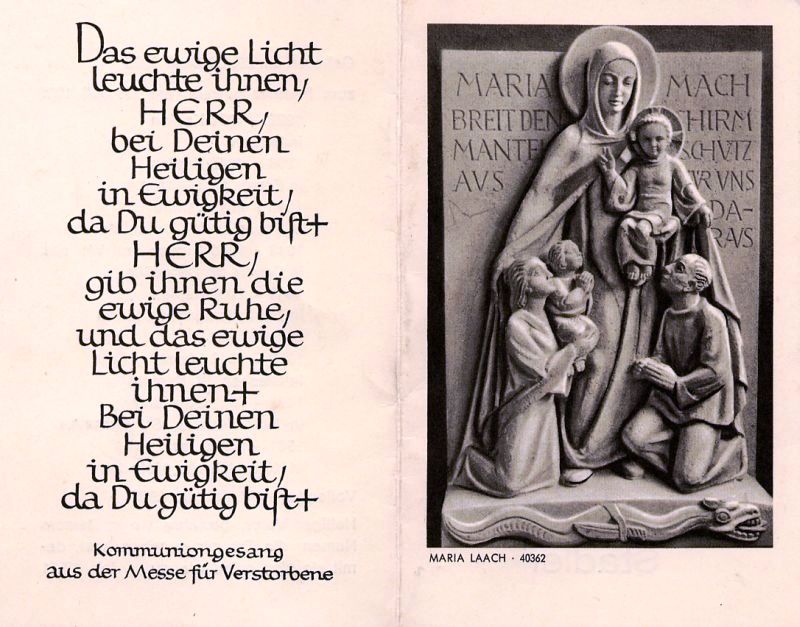 Das ewige Licht
leuchte ihnen,
HERR,
bei Deinen
Heiligen
in Ewigkeit,
da Du gütig bist+
HERR,
gib ihnen die
ewige Ruhe,
und das ewige
Licht leuchte
ihnen+
Bei Deinen
Heiligen
in Ewigkeit,
da Du gütig bist+
Kommuniongesang
aus der Messe für Verstorbene
MARIA
BREIT DEN
MANTEL
AVS
MACH
HIRM
SCHVTZ
VR VNS
DA-
RAVS
MARIA LAACH · 40362